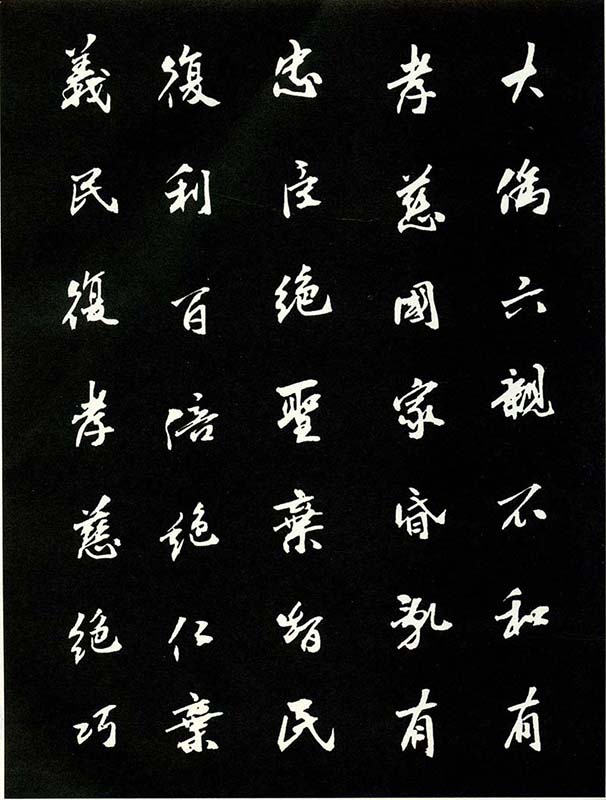 大偽六親不和有
孝慈國家昏亂有
忠臣絕聖棄智民
復利百倍絕仁棄
義民復孝慈絕巧